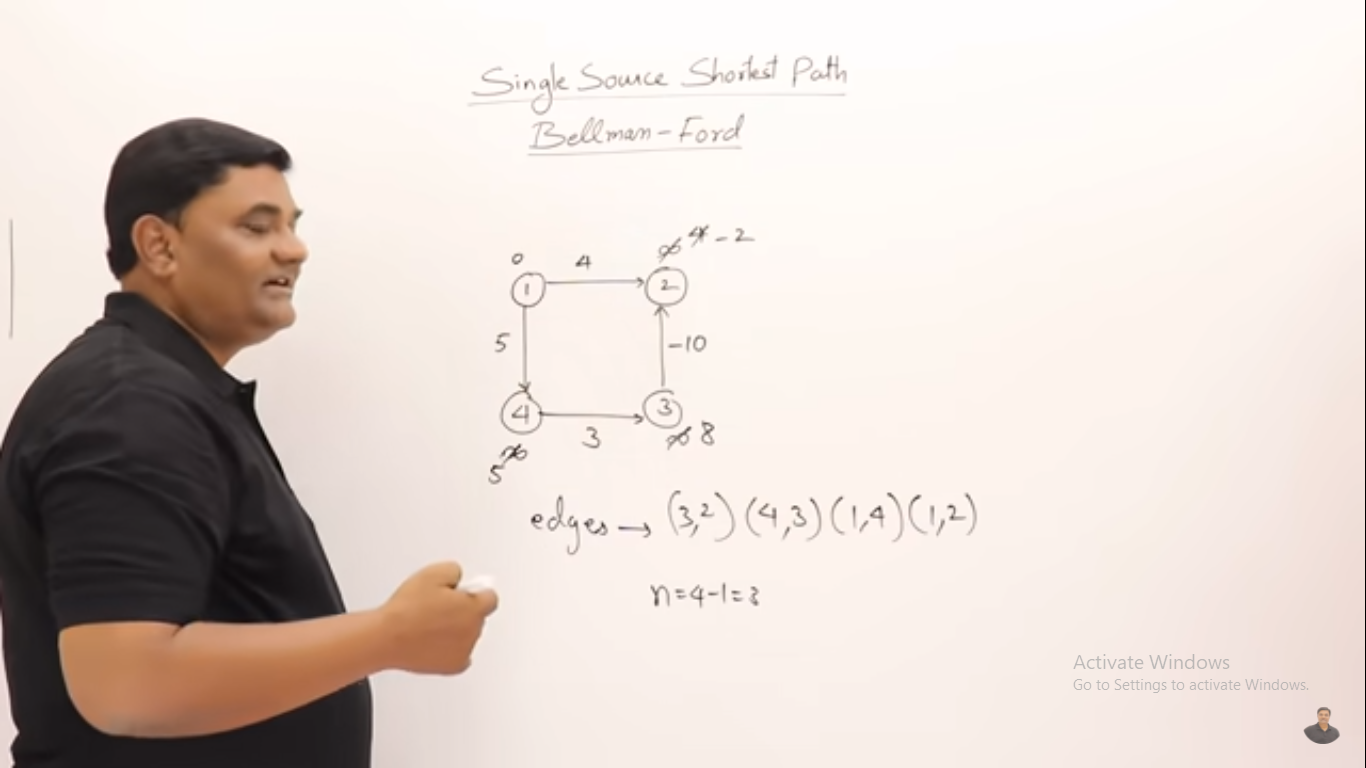 Single Source Shortest Path
Bellman-Ford
0 4 ∞ 4 -2
1 2
5 -10
4 3
3 ∞ 8
∞
5
edges → (3,2) (4,3) (1,4) (1,2)
n=4-1=3
Activate Windows
Go to Settings to activate Windows.